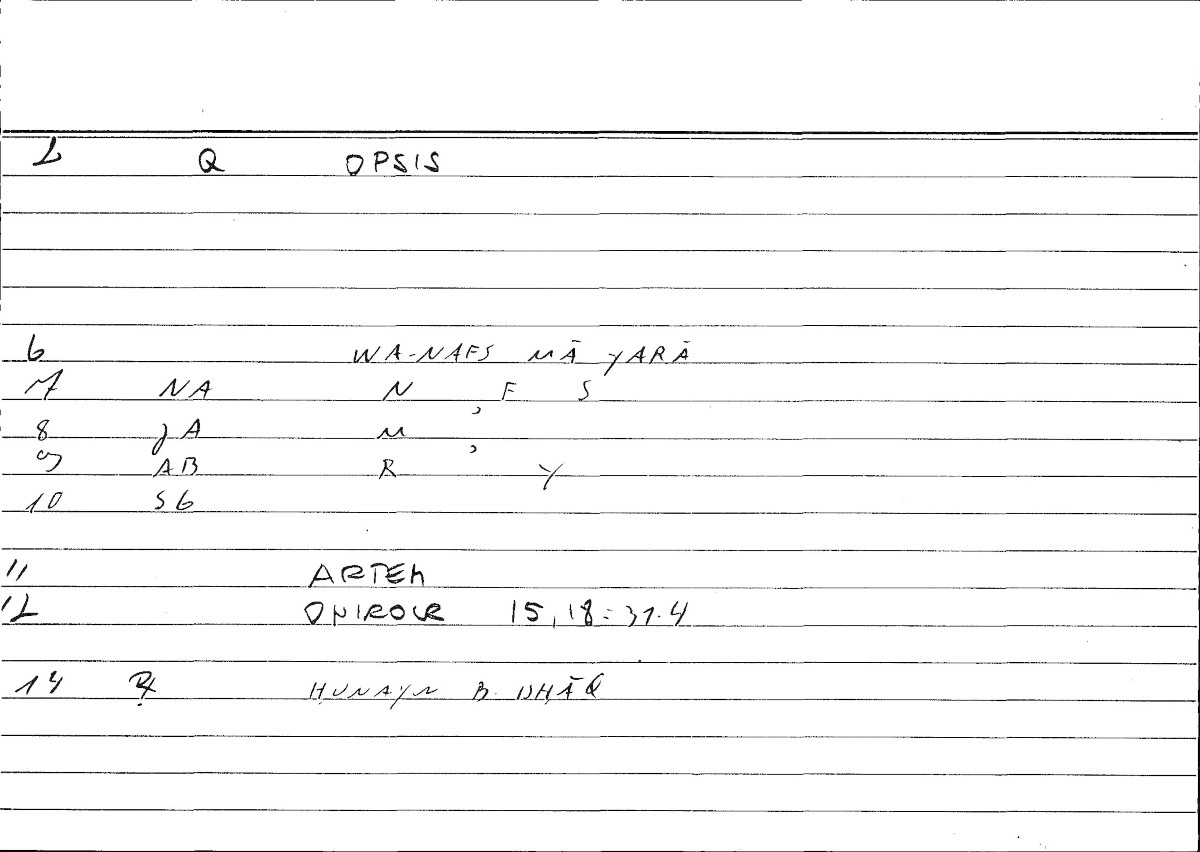 2 Q OPSIS
6 WA-NAFS MĀ YARĀ
7 NA N F S
8 JA ʾ M
9 AB ʾ R Y
10 SG
11 ARTEM
12 ONIROCR 15,18:31.4
14 HUNAYN B. ISHĀQ